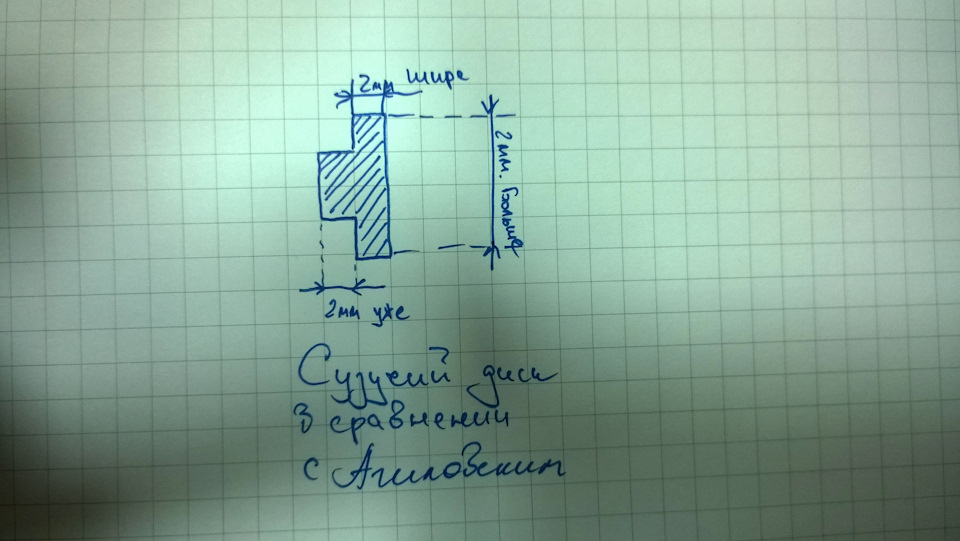 2мм шире
2мм. больше
2мм уже
Сузукий диск
в сравнении
с Агиловским